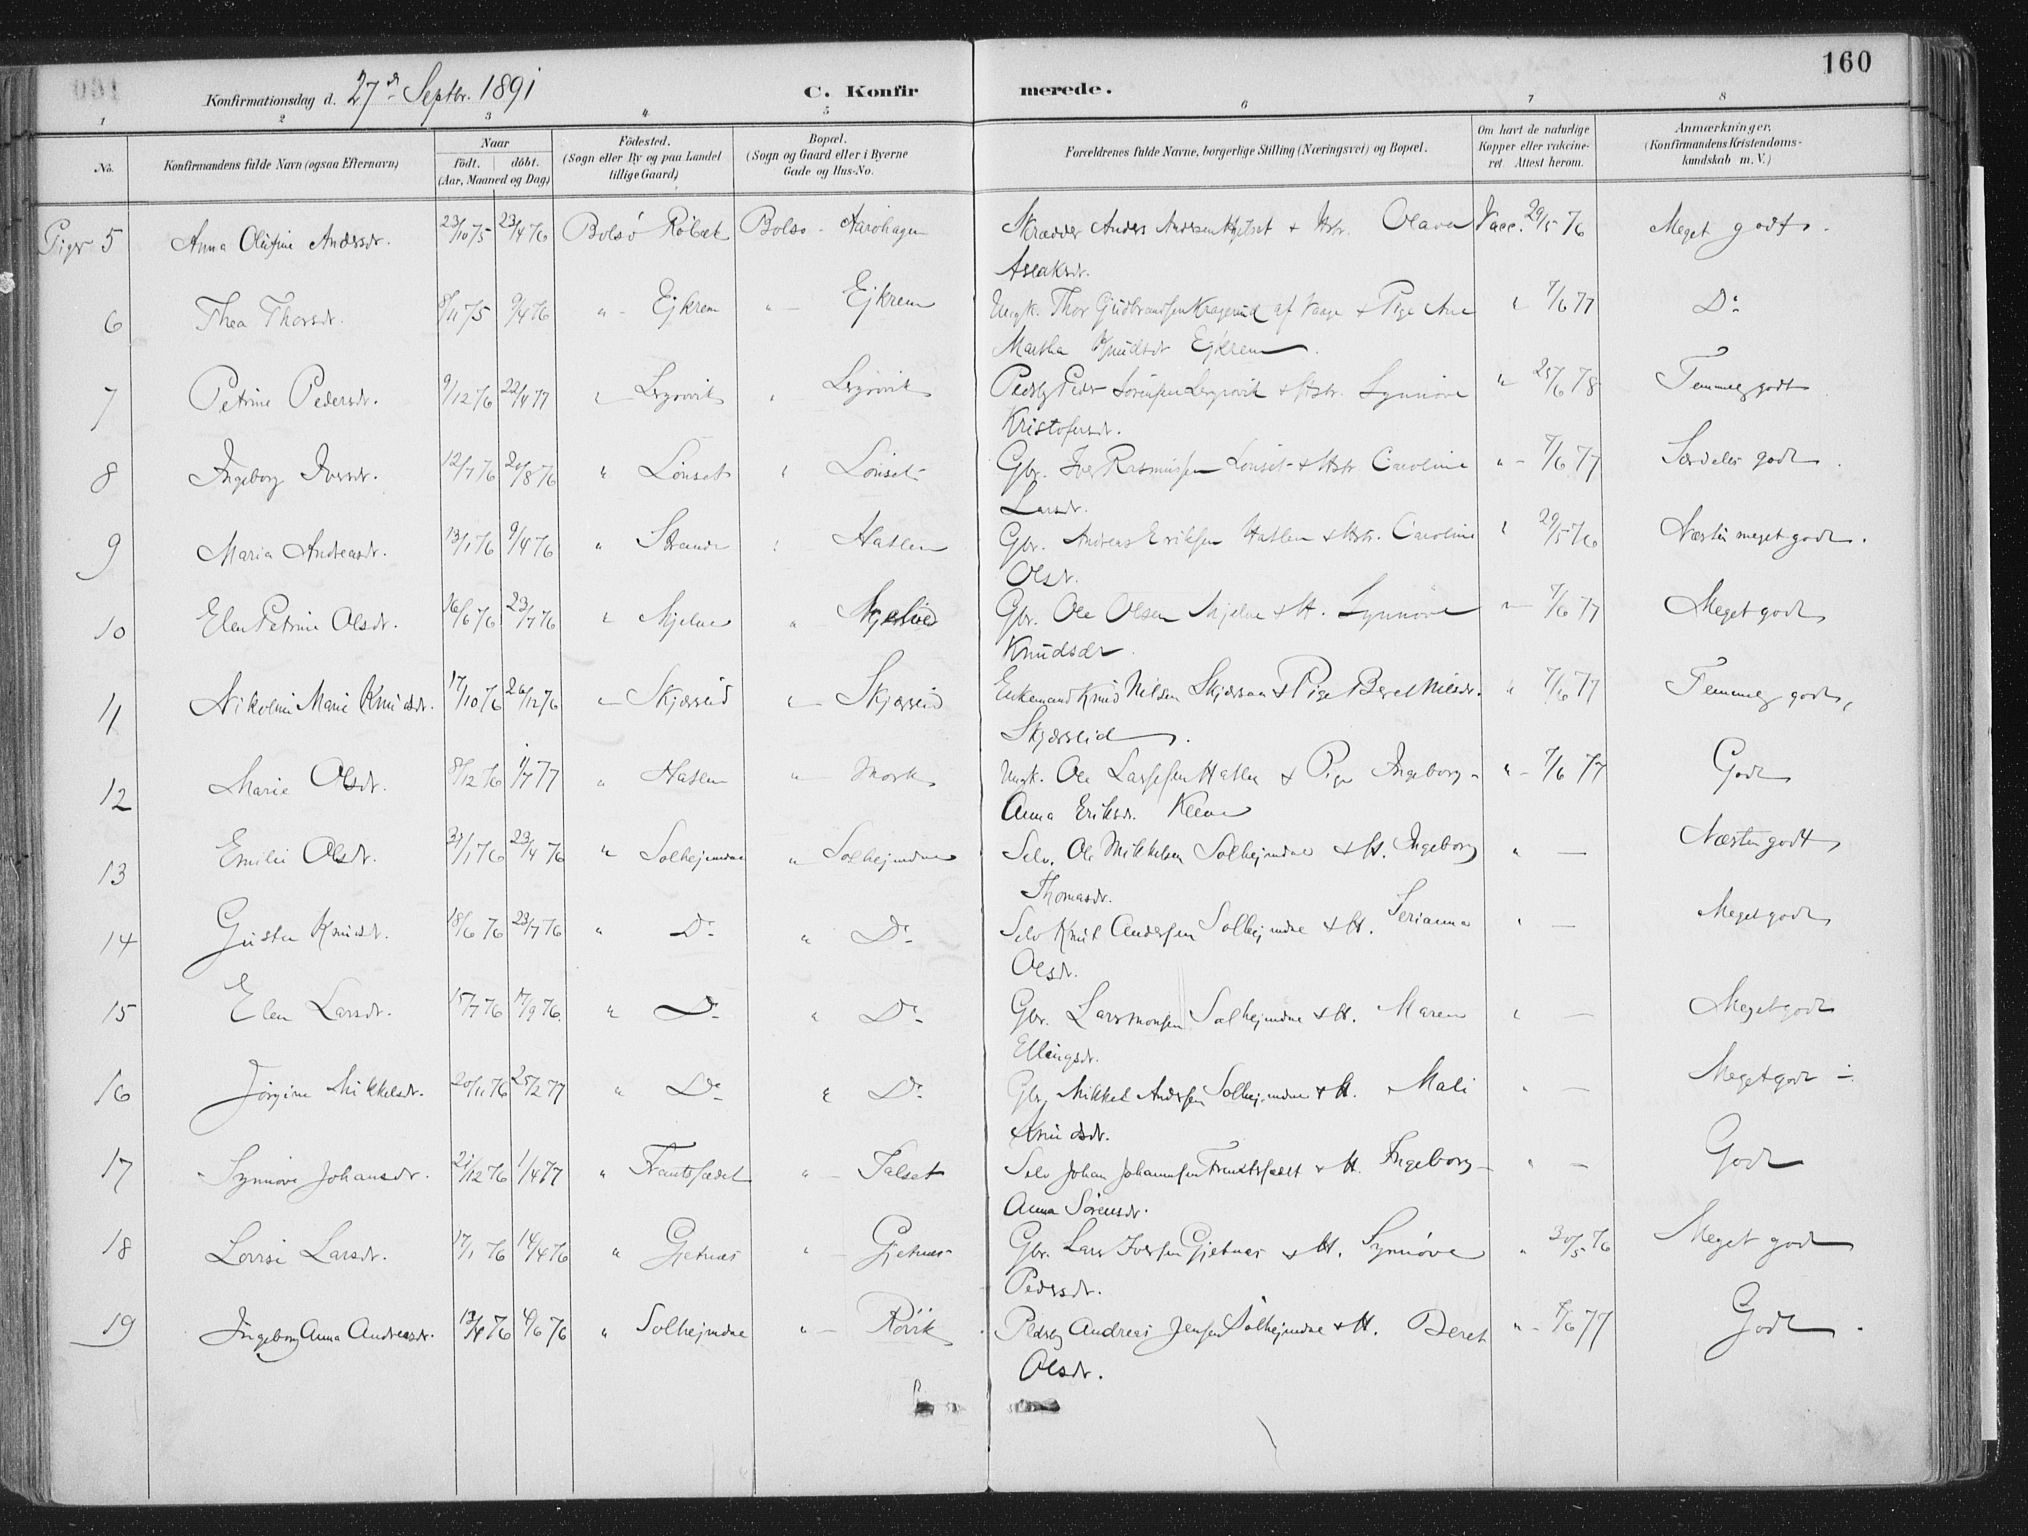 160
Konfirmationsdag d. 27de Septbr. 1891 C. Konfirmerede.
1 2 3 4 5 6 7 8
No. Konfirmandens fulde Navn (ogsaa Efternavn) Naar födt. döbt. (Aar, Maaned og Dag) Födested. (Sogn eller By og paa Landet tillige Gaard) Bopæl. (Sogn og Gaard eller i Byerne Gade og Hus-No. Forældrenes fulde Navne, borgerlige Stilling (Næringsvei) og Bopæl. Om havt de naturlige Kopper eller vakcineret. Attest herom. Anmærkninger. (Konfirmandens Kristendomskundskab m. V.)
Piger 5 Anna Olufine Andersdr. 23/10 75 23/4 76 Bolsö Röbæk Bolsö - Aaröhagen Skrædder Anders Andersen & Hstr. Olava Vacc. 29/5 76 Meget godt.
Aslaksdr.
6 Thea Thorsdr. 8/11 75 9/4 76 " - Ejkrem " - Ejkrem Ungk. Thor Gudbrandsen Kragerud af Vaage & Pige Ane " 7/6 77 Do
Martha Knudsdr Ejkrem.
7 Petrine Pedersdr. 9/12 76 22/4 77 " Lergrovik " Lergrovik Pedr Sörensen Lergrovik & Hstr. Synnöve " 25/6 78 Temmeg godt
Kristofersdr.
8 Ingeborg Iversdr. 12/7 76 20/8 76 " Lönset " Lönset Gbr. Iver Rasmussen Lönset & Hstr Caroline " - 7/6 77 Særdeles godt.
Larsdr.
9 Maria Andreasdr. 13/1 76 9/4 76 " Strande " Hatlen Gbr. Andreas Eriksen Hatlen & Hstr. Caroline " 29/5 76 Næsten meget godt.
Olsdr.
10 Elen Petrine Olsdr. 16/6 76 23/7 76 " Skjelve " Skjelve Gbr. Ole Olsen Skjelve & H. Synnöve " 7/6 77 Meget godt
Knudsdr.
11 Nikoline Marie Knudsdr. 17/10 76 26/12 76 " Skjörseid " Skjörseid Enkemand Knud Nilsen Skjörsaa & Pige Beret Nilsdr. " 7/6 77 Temmeg godt,
Skjörseid.
12 Marie Olsdr. 8/12 76 1/7 77 " Hatlen " Mork Ungk. Ole Larsen Hatlen & Pige Ingeborg- " - 7/6 77 Godt
Anna Eriksdr. Kleve
13 Emilie Olsdr. 31/1 76 23/4 76 " Solhejmdne " Solhejmdne Selv. Ole Mikkelsen Solhejmdne & H. Ingeborg " - Næsten godt
Thomasdr.
14 Gusta Knudsdr. 18/6 76 23/7 76 " Do " Do Selv Knut Andersen Solhejmdne & H. Serianna " - Meget godt
Olsdr.
15 Elen Larsdr. 15/7 76 17/9 76. " Do " Do Gbr. Lars Monsen Solhejmdne & H. Maren " - Meget godt
Ellingsdr.
16 Jörgine Mikkelsdr. 20/11 76 25/2 77 " Do " Do Gbr. Mikkel Andersen Solhejmdne & H. Mali " - Meget godt ÷
Knudsdr.
17 Synnöve Johansdr. 21/12 76 1/4 77 " Frantsfædet " - Talset Selv Johan Johannsen Frantsfædet & H. Ingeborg- " - Godt
Anna Sörensdr.
18 Lovise Larsdr. 17/1 76 14/4 76 " Gjetnæs " - Gjetnæs Gbr. Lars Iversen Gjetnæs & H. Synnöve " 30/5 76 Meget godt
Pedersdr.
19 Ingeborg Anna Andreasdr. 13/4 76 4/6 76 " Solhejmdne " - Rövik Andreas Jensen Solhejmdne & H. Beret " - 7/6 77 Godt.
Olsdr.